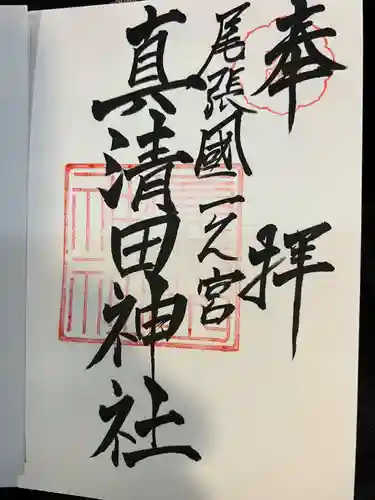 奉拝
尾張國一之宮
真清田神社